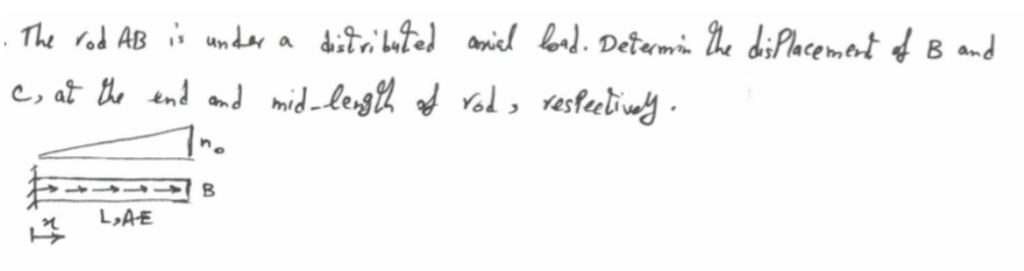 . The rod AB is under a distributed axial load. Determin the disPlacement of B and
C, at the end and mid-length of rod, respectively.
n₀
B
L, AE
x